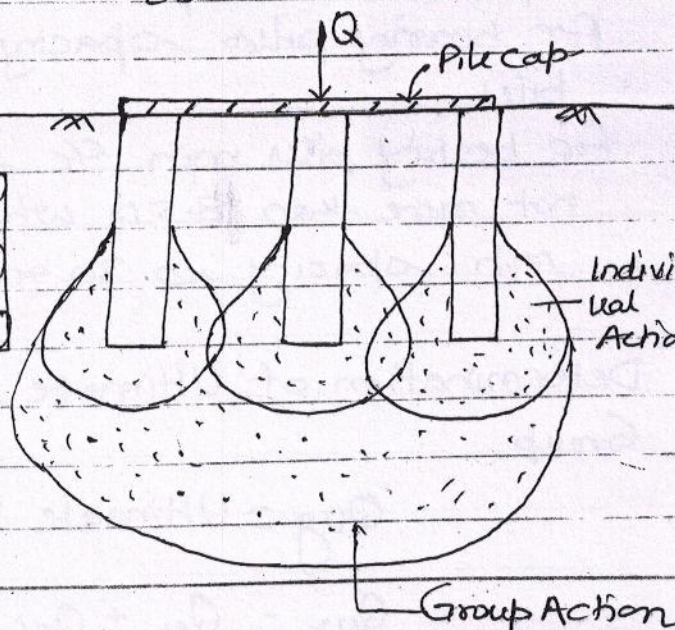 Q
Pile cap
Indivi
ual
Actio
Group Action